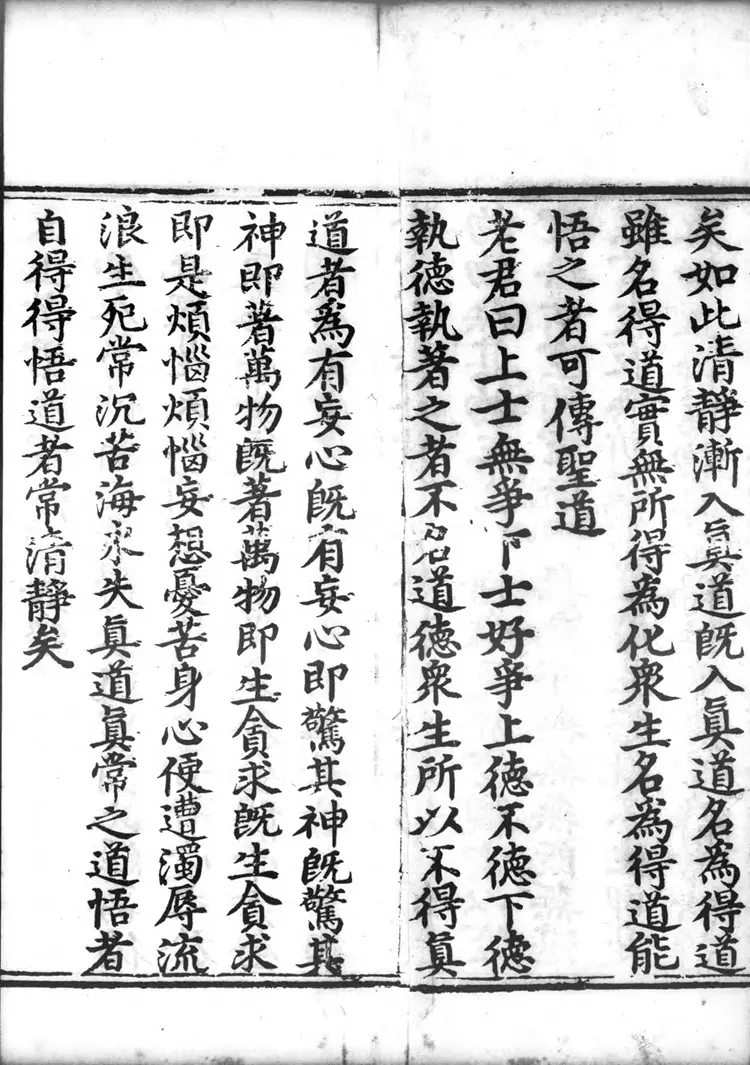 矣如此清靜漸入眞道旣入眞道名為得道
雖名得道實無所得為化衆生名為得道能
悟之者可傳聖道
老君曰上士無爭下士好爭上德不德下德
執德執著之者不名道德衆生所以不得眞
道者爲有妄心旣有妄心即驚其神旣驚其
神即著萬物旣著萬物即生貪求旣生貪求
即是煩惱煩惱妄想憂苦身心便遭濁辱流
浪生死常沉苦海永失眞道眞常之道悟者
自得得悟道者常清靜矣